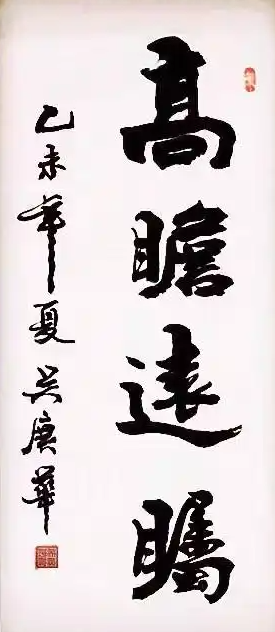 高瞻遠矚
乙未年夏吴庚華